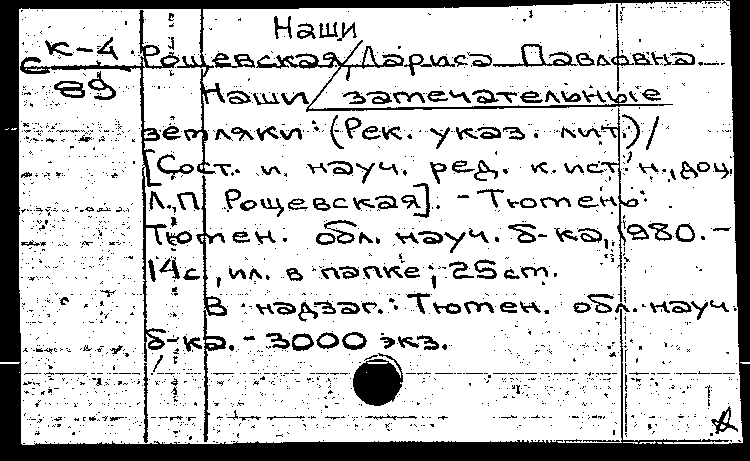 Наши
С К-4 Рощевская, Лариса Павловна.
89 Наши / замечательные
земляки: (Рек. указ. лит.) /
[Сост. и науч. ред. к.ист.н., доц.
Л.П. Рощевская]. - Тюмень:
Тюмен. обл. науч. б-ка, 1980. -
14с., ил. в папке; 25см.
В надзаг.: Тюмен. обл. науч.
б-ка. - 3000 экз.